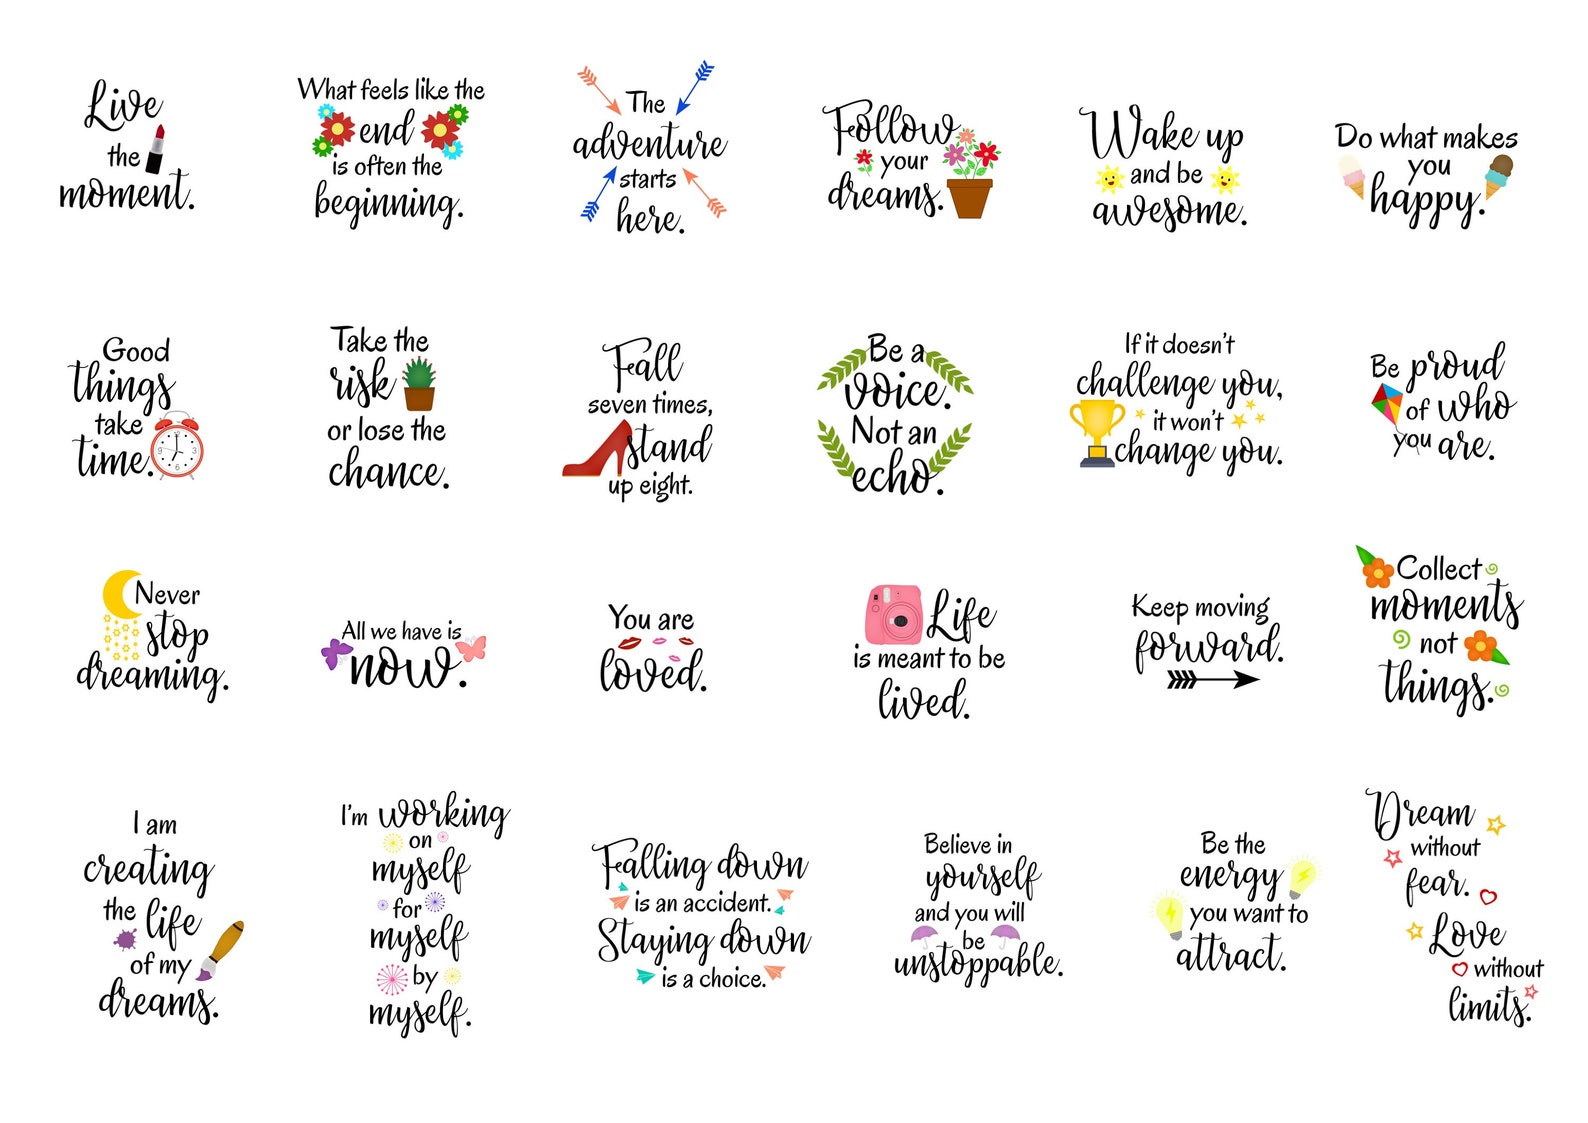 Live
the
moment.
What feels like the
end
is often the
beginning.
The
adventure
starts
here.
Follow
your
dreams.
Wake up
and be
awesome.
Do what makes
you
happy.
Good
things
take
time.
Take the
risk
or lose the
chance.
Fall
seven times,
stand
up eight.
Be a
voice.
Not an
echo.
If it doesn't
challenge you,
it won't
change you.
Be proud
of who
you are.
Never
stop
dreaming.
All we have is
now.
You are
loved.
Life
is meant to be
lived.
Keep moving
forward.
Collect
moments
not
things.
I am
creating
the life
of my
dreams.
I'm working
on
myself
for
myself
by
myself.
Falling down
is an accident.
Staying down
is a choice.
Believe in
yourself
and you will
be
unstoppable.
Be the
energy
you want to
attract.
Dream
without
fear.
Love
without
limits.